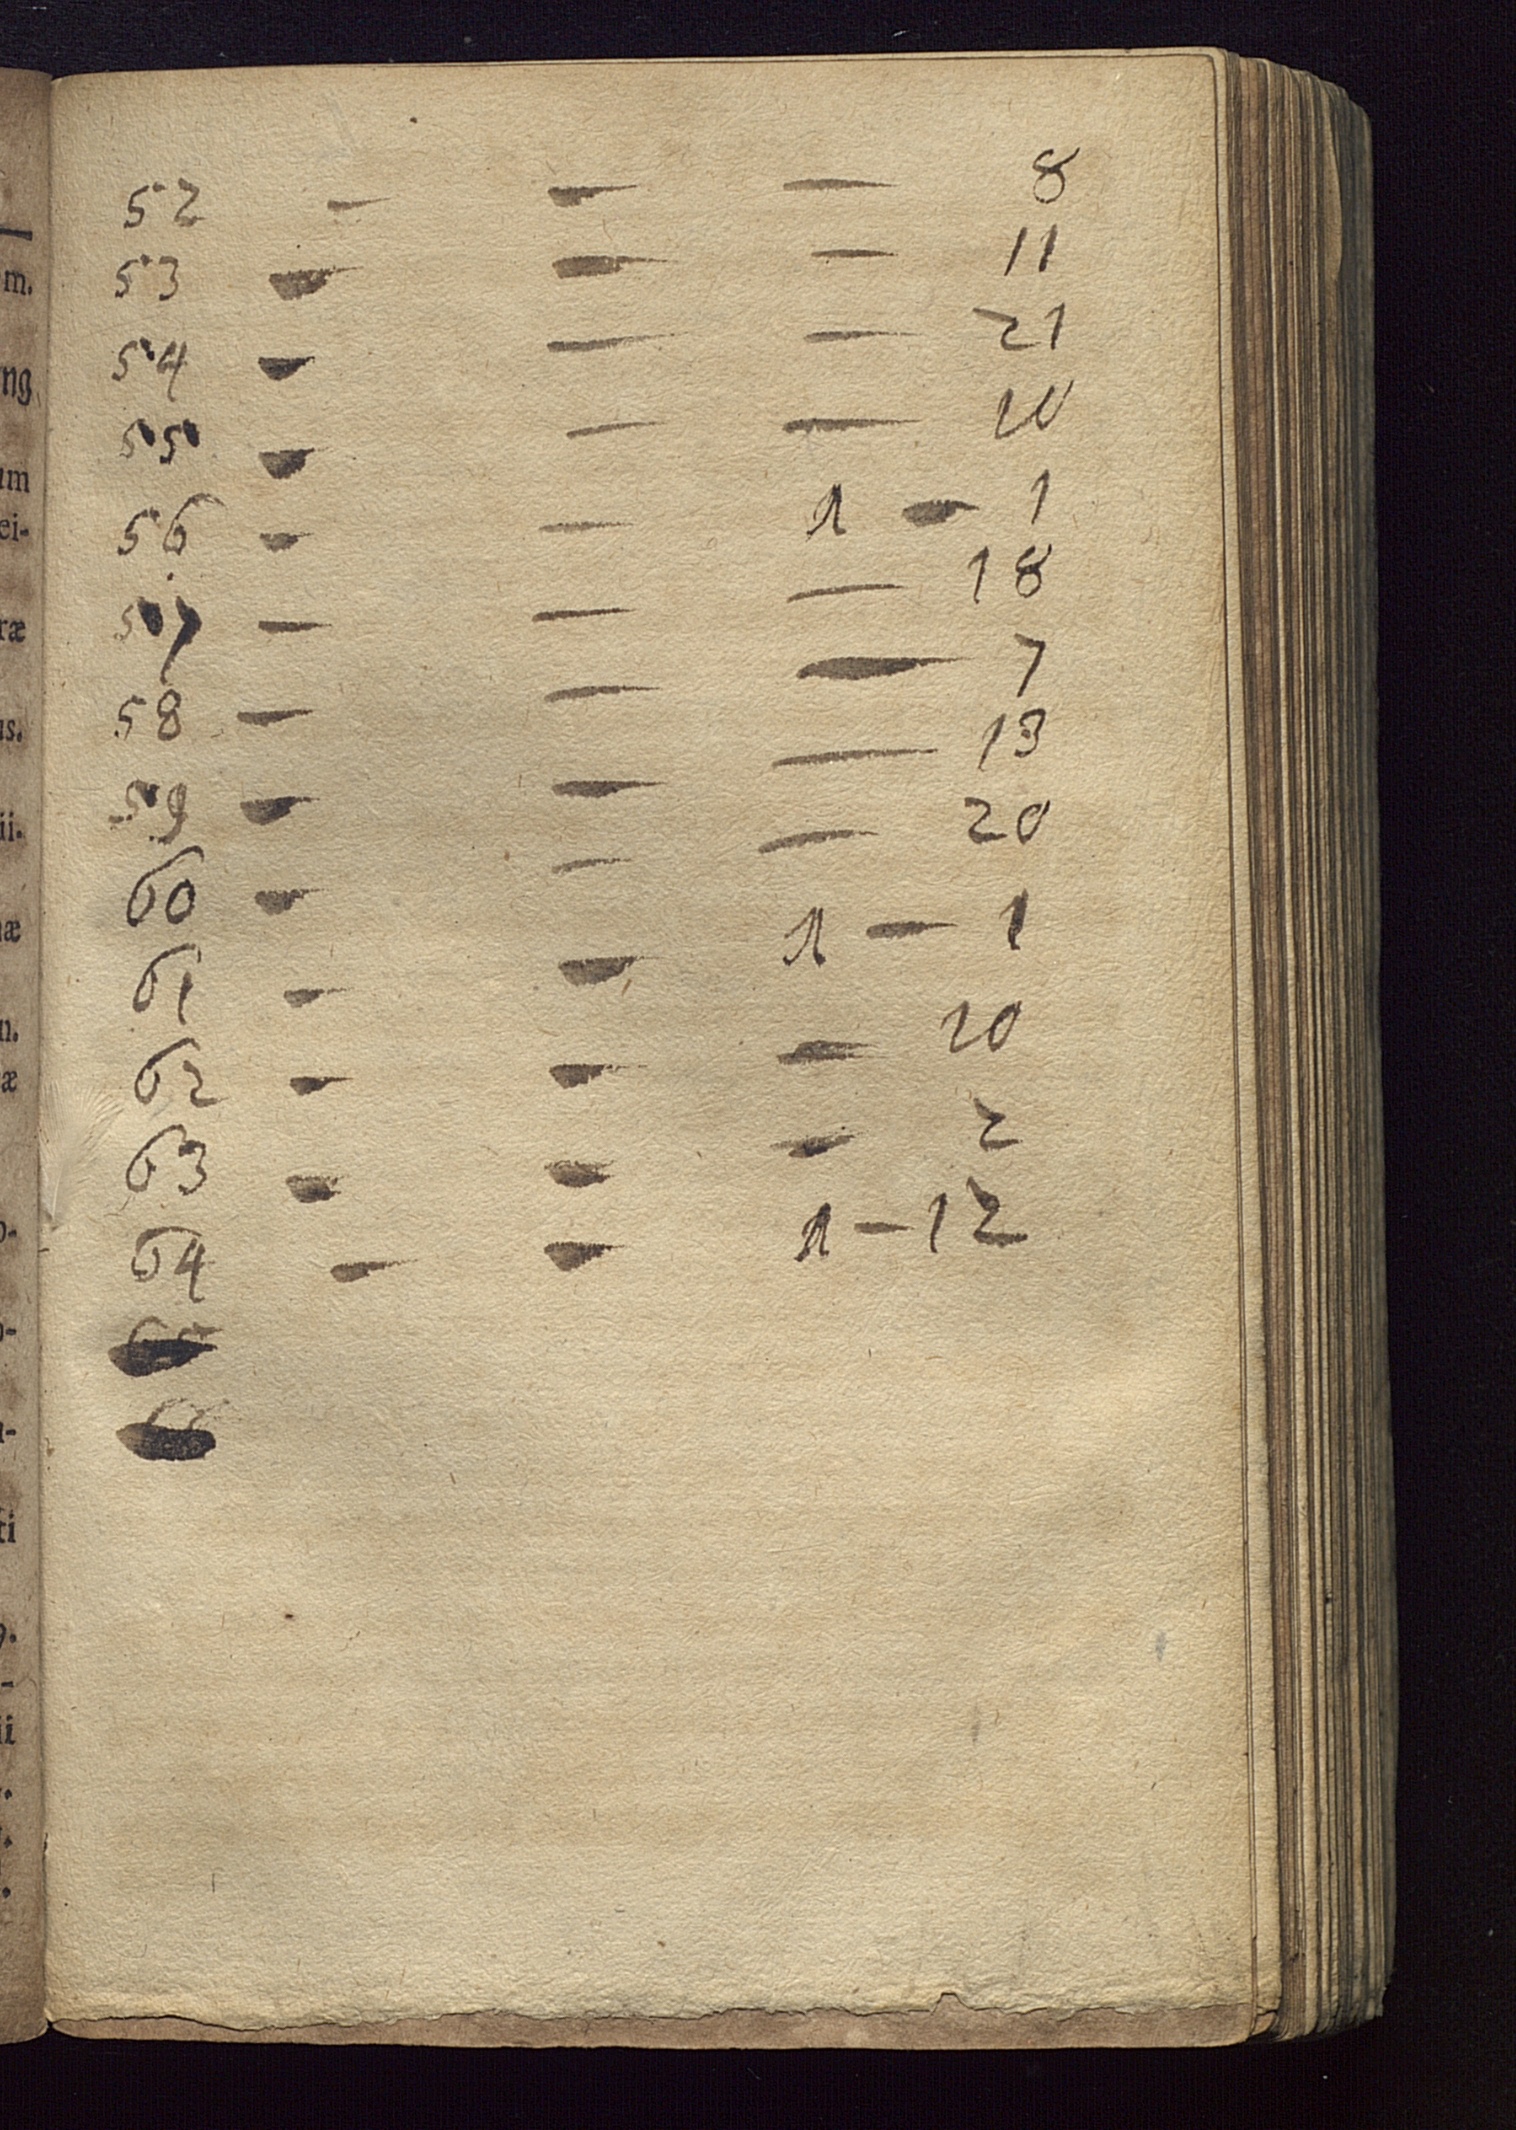 52 - - - 8
53 - - - 11
54 - - - 21
55 - - - 10
56 - - 1 - 1
57 - - - 18
58 - - - 7
59 - - - 13
60 - - - 20
61 - - 1 - 1
62 - - - 10
63 - - - 2
64 - - 1 - 12
65
66
m.
ng
um
ei-
ræ
us.
ii.
æ
n.
æ
o-
o-
ti
ii